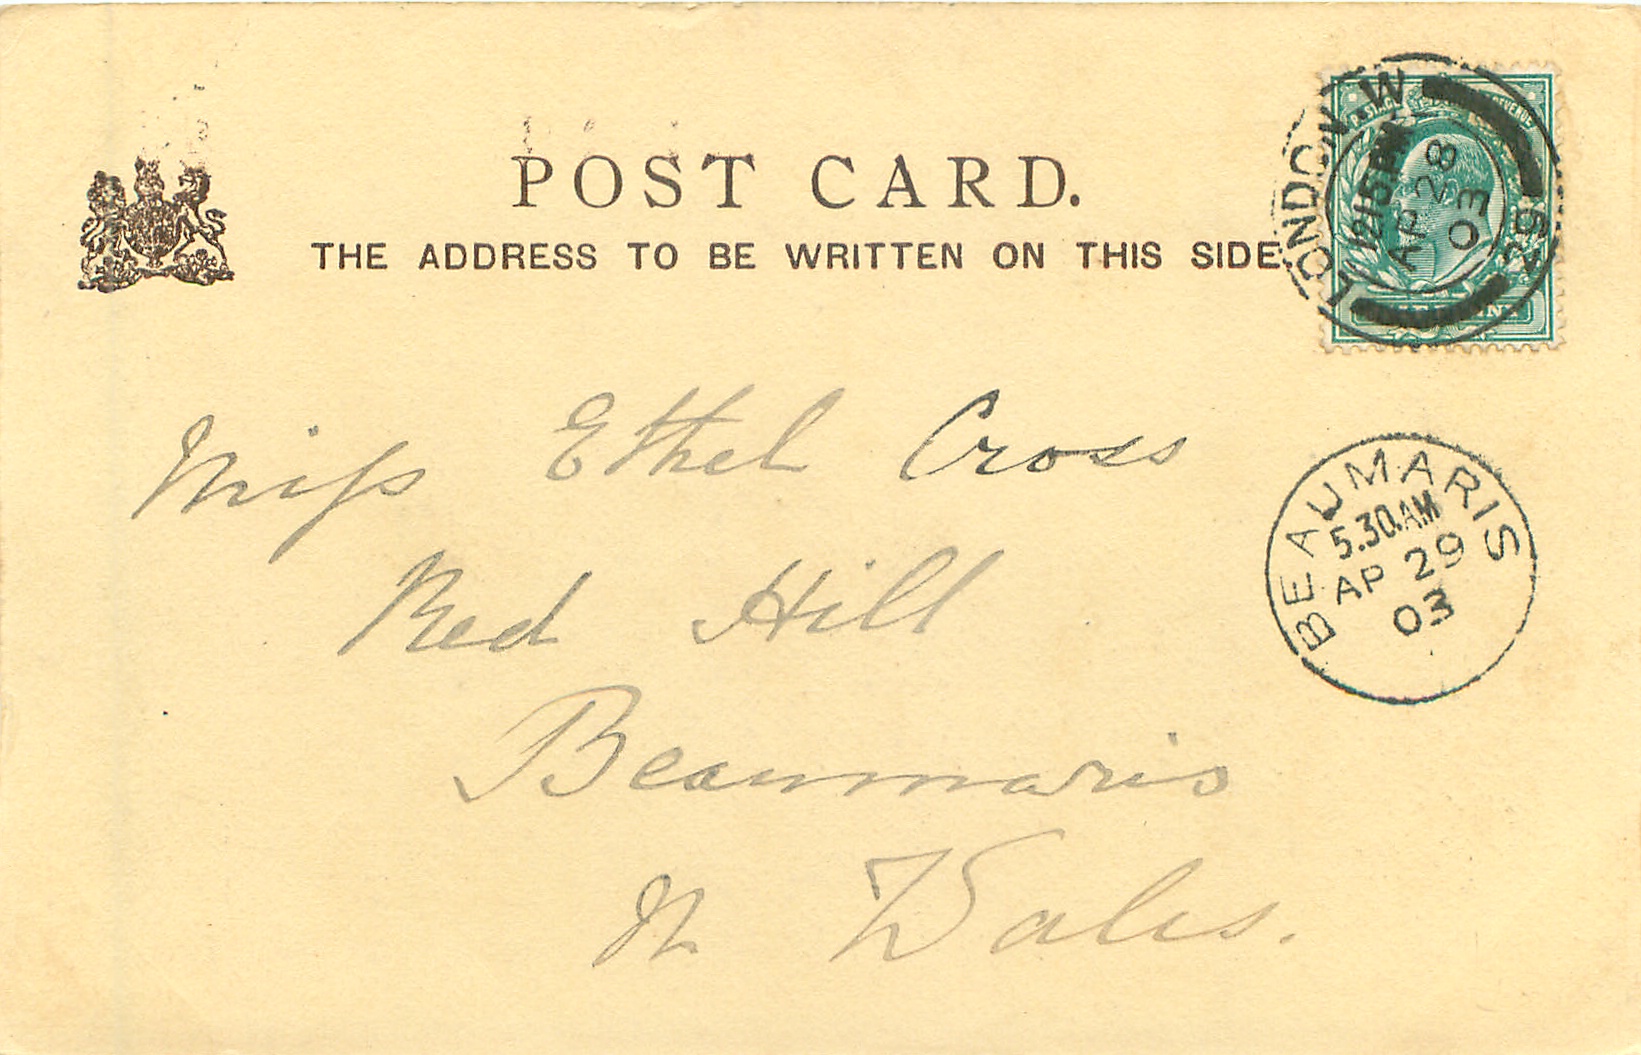 POST CARD.
THE ADDRESS TO BE WRITTEN ON THIS SIDE
LONDON. W
12.15 PM
AP 28
03
29
POSTAGE REVENUE
Miss Ethel Cross
Red Hill
Beaumaris
N Wales.
BEAUMARIS
5.30.AM
AP 29
03